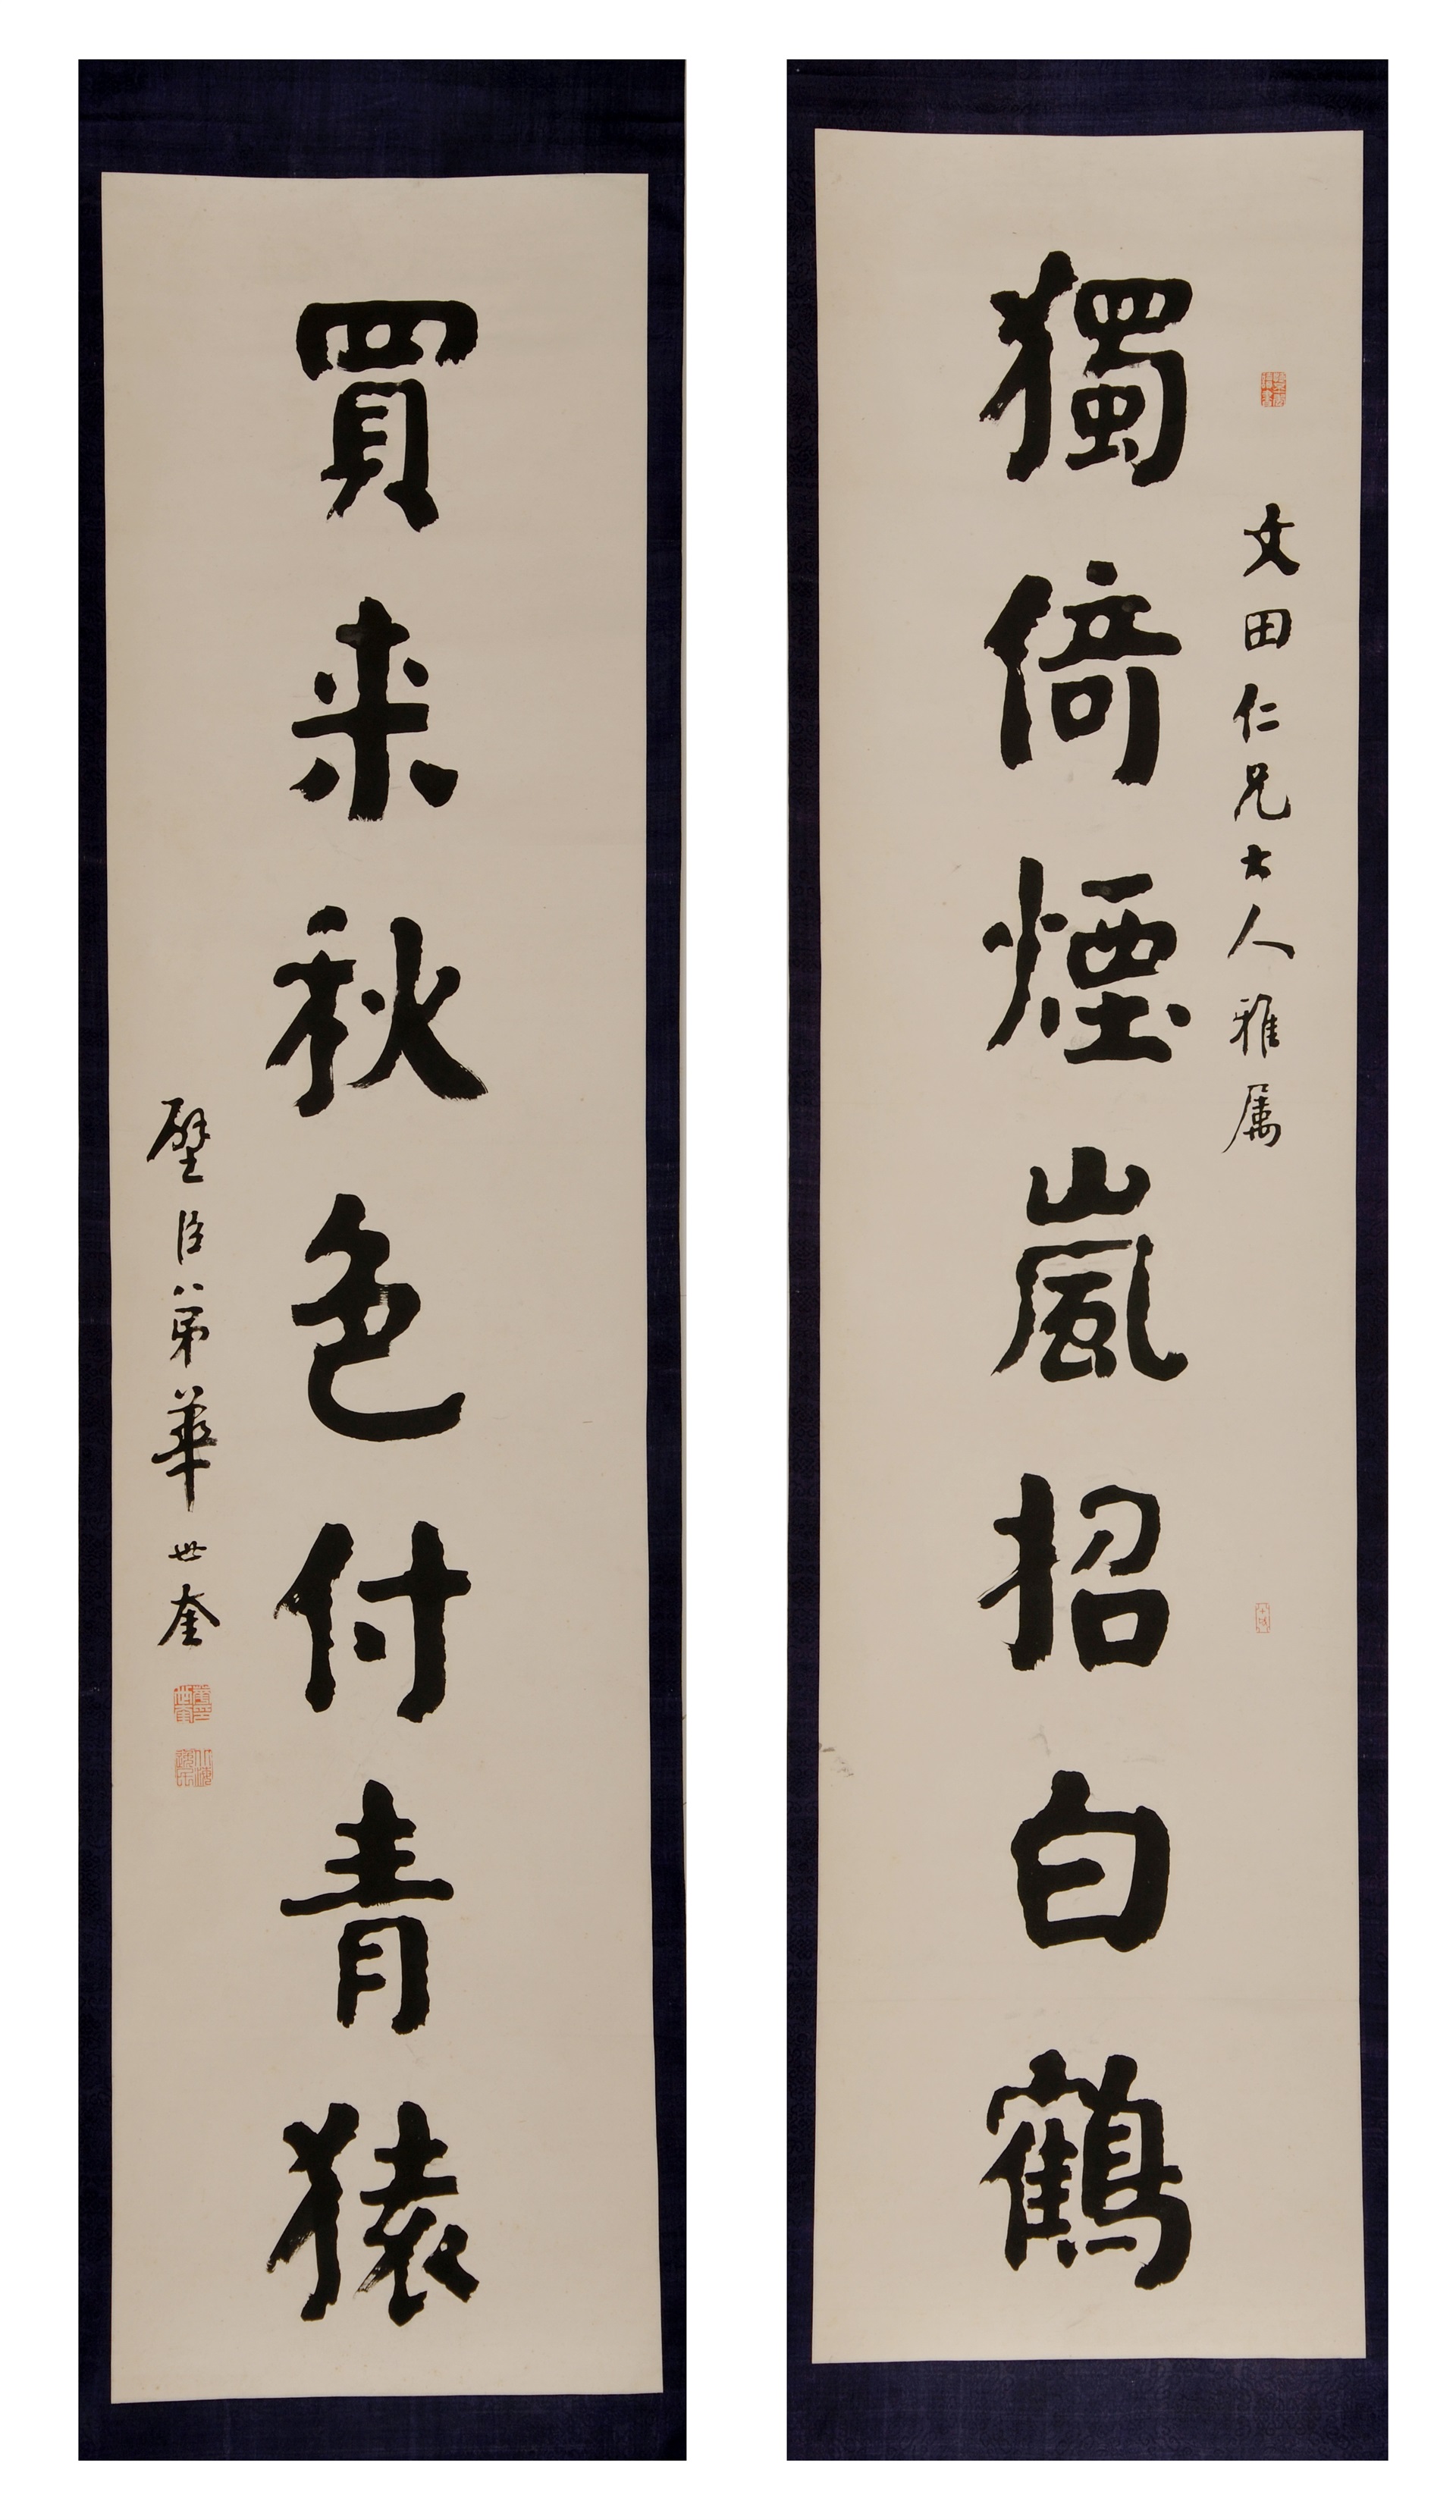 文田仁兄大人雅属
獨倚煙嵐招白鶴
買来秋色付青猿
璧臣弟華世奎